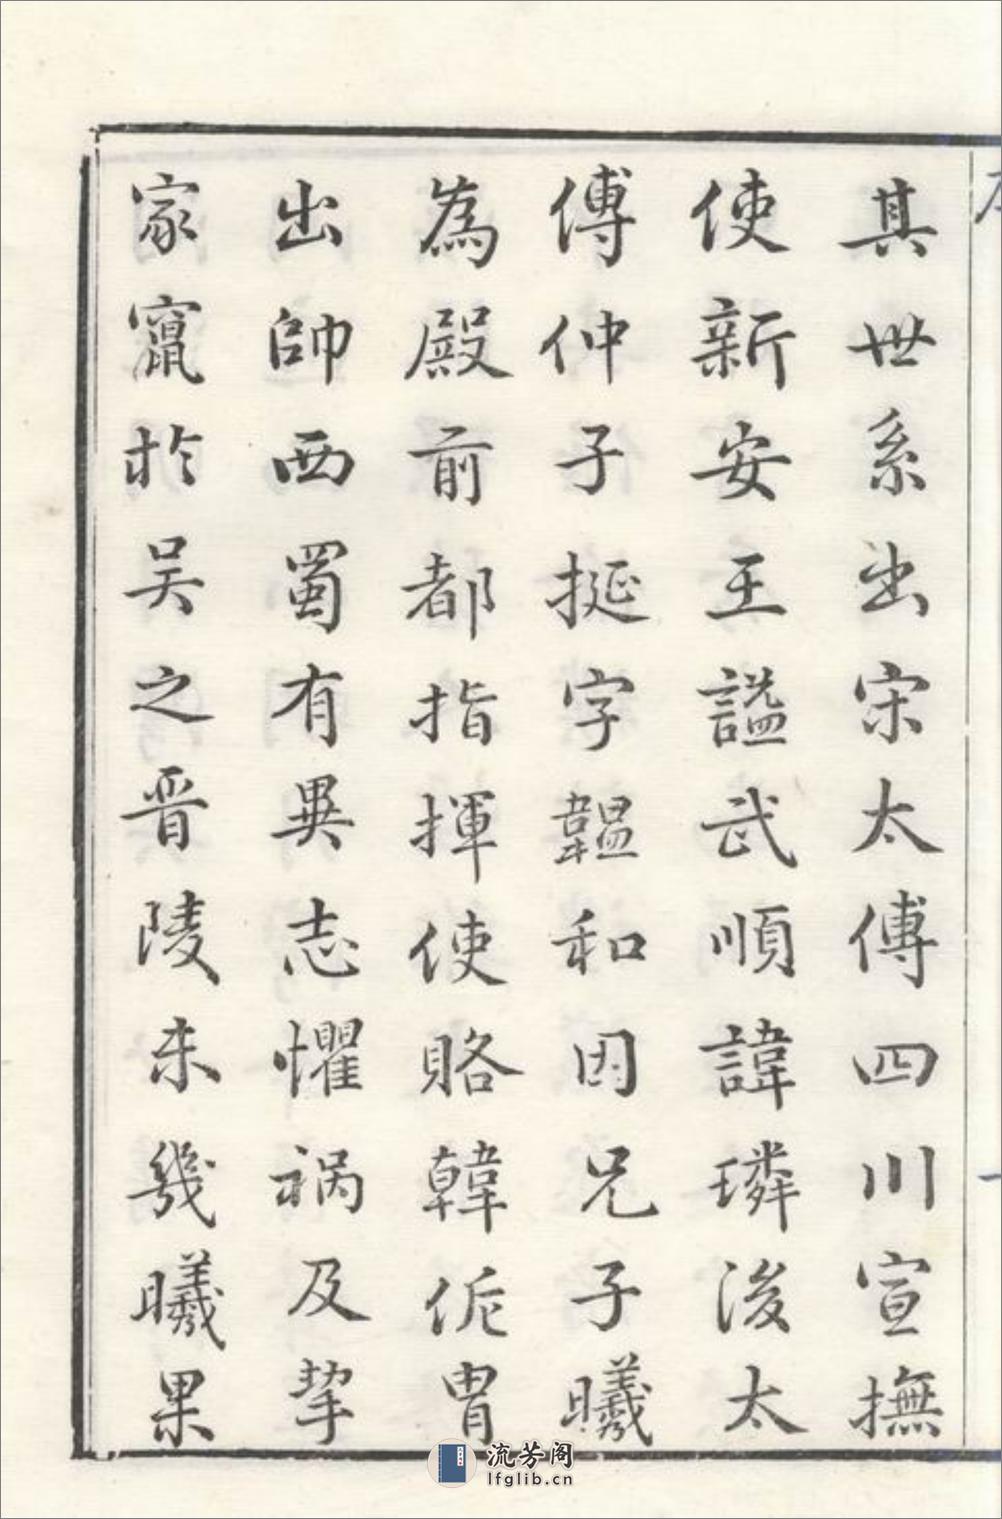 其世系出宋太傅四川宣撫
使新安王謚武順諱璘後太
傅仲子挻字韞和因兄子曦
為殿前都指揮使賂韓侂冑
出帥西蜀有異志懼禍及挈
家竄於吴之晉陵未幾曦果
流芳阁
lfglib.cn